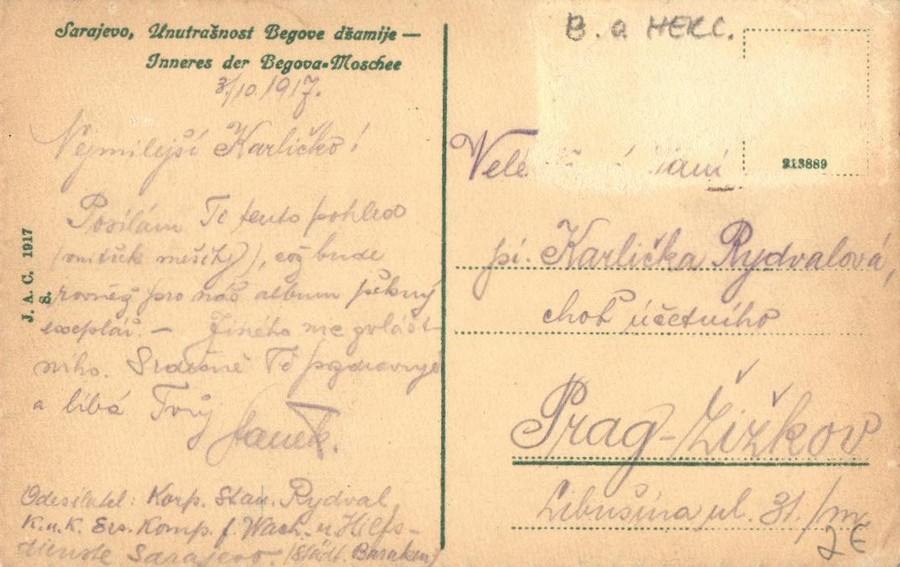 Sarajevo, Unutrašnost Begove džamije —
Inneres der Begova-Moschee
3/10. 1917.
Nejmilejší Karličko!
Posílám Ti tento pohled
(vnitřek mešity), což bude
rovněž pro náš album pěkný
exemplář. — Jiného nic zvlášt-
ního. Srdečně Tě pozdravuje
a líbá Tvůj
Odesílatel: Korp. Stan. Rydval,
K. u. K. Ers. Komp. f. Wach- u. Hilfs-
dienste Sarajevo. (Städt. Baraken)
J. A. C. 1917
8.
B. a HERC.
213889
pí. Karlička Rydvalová,
choť účetního
Prag-Žižkov
Libušina ul. 31./
2€